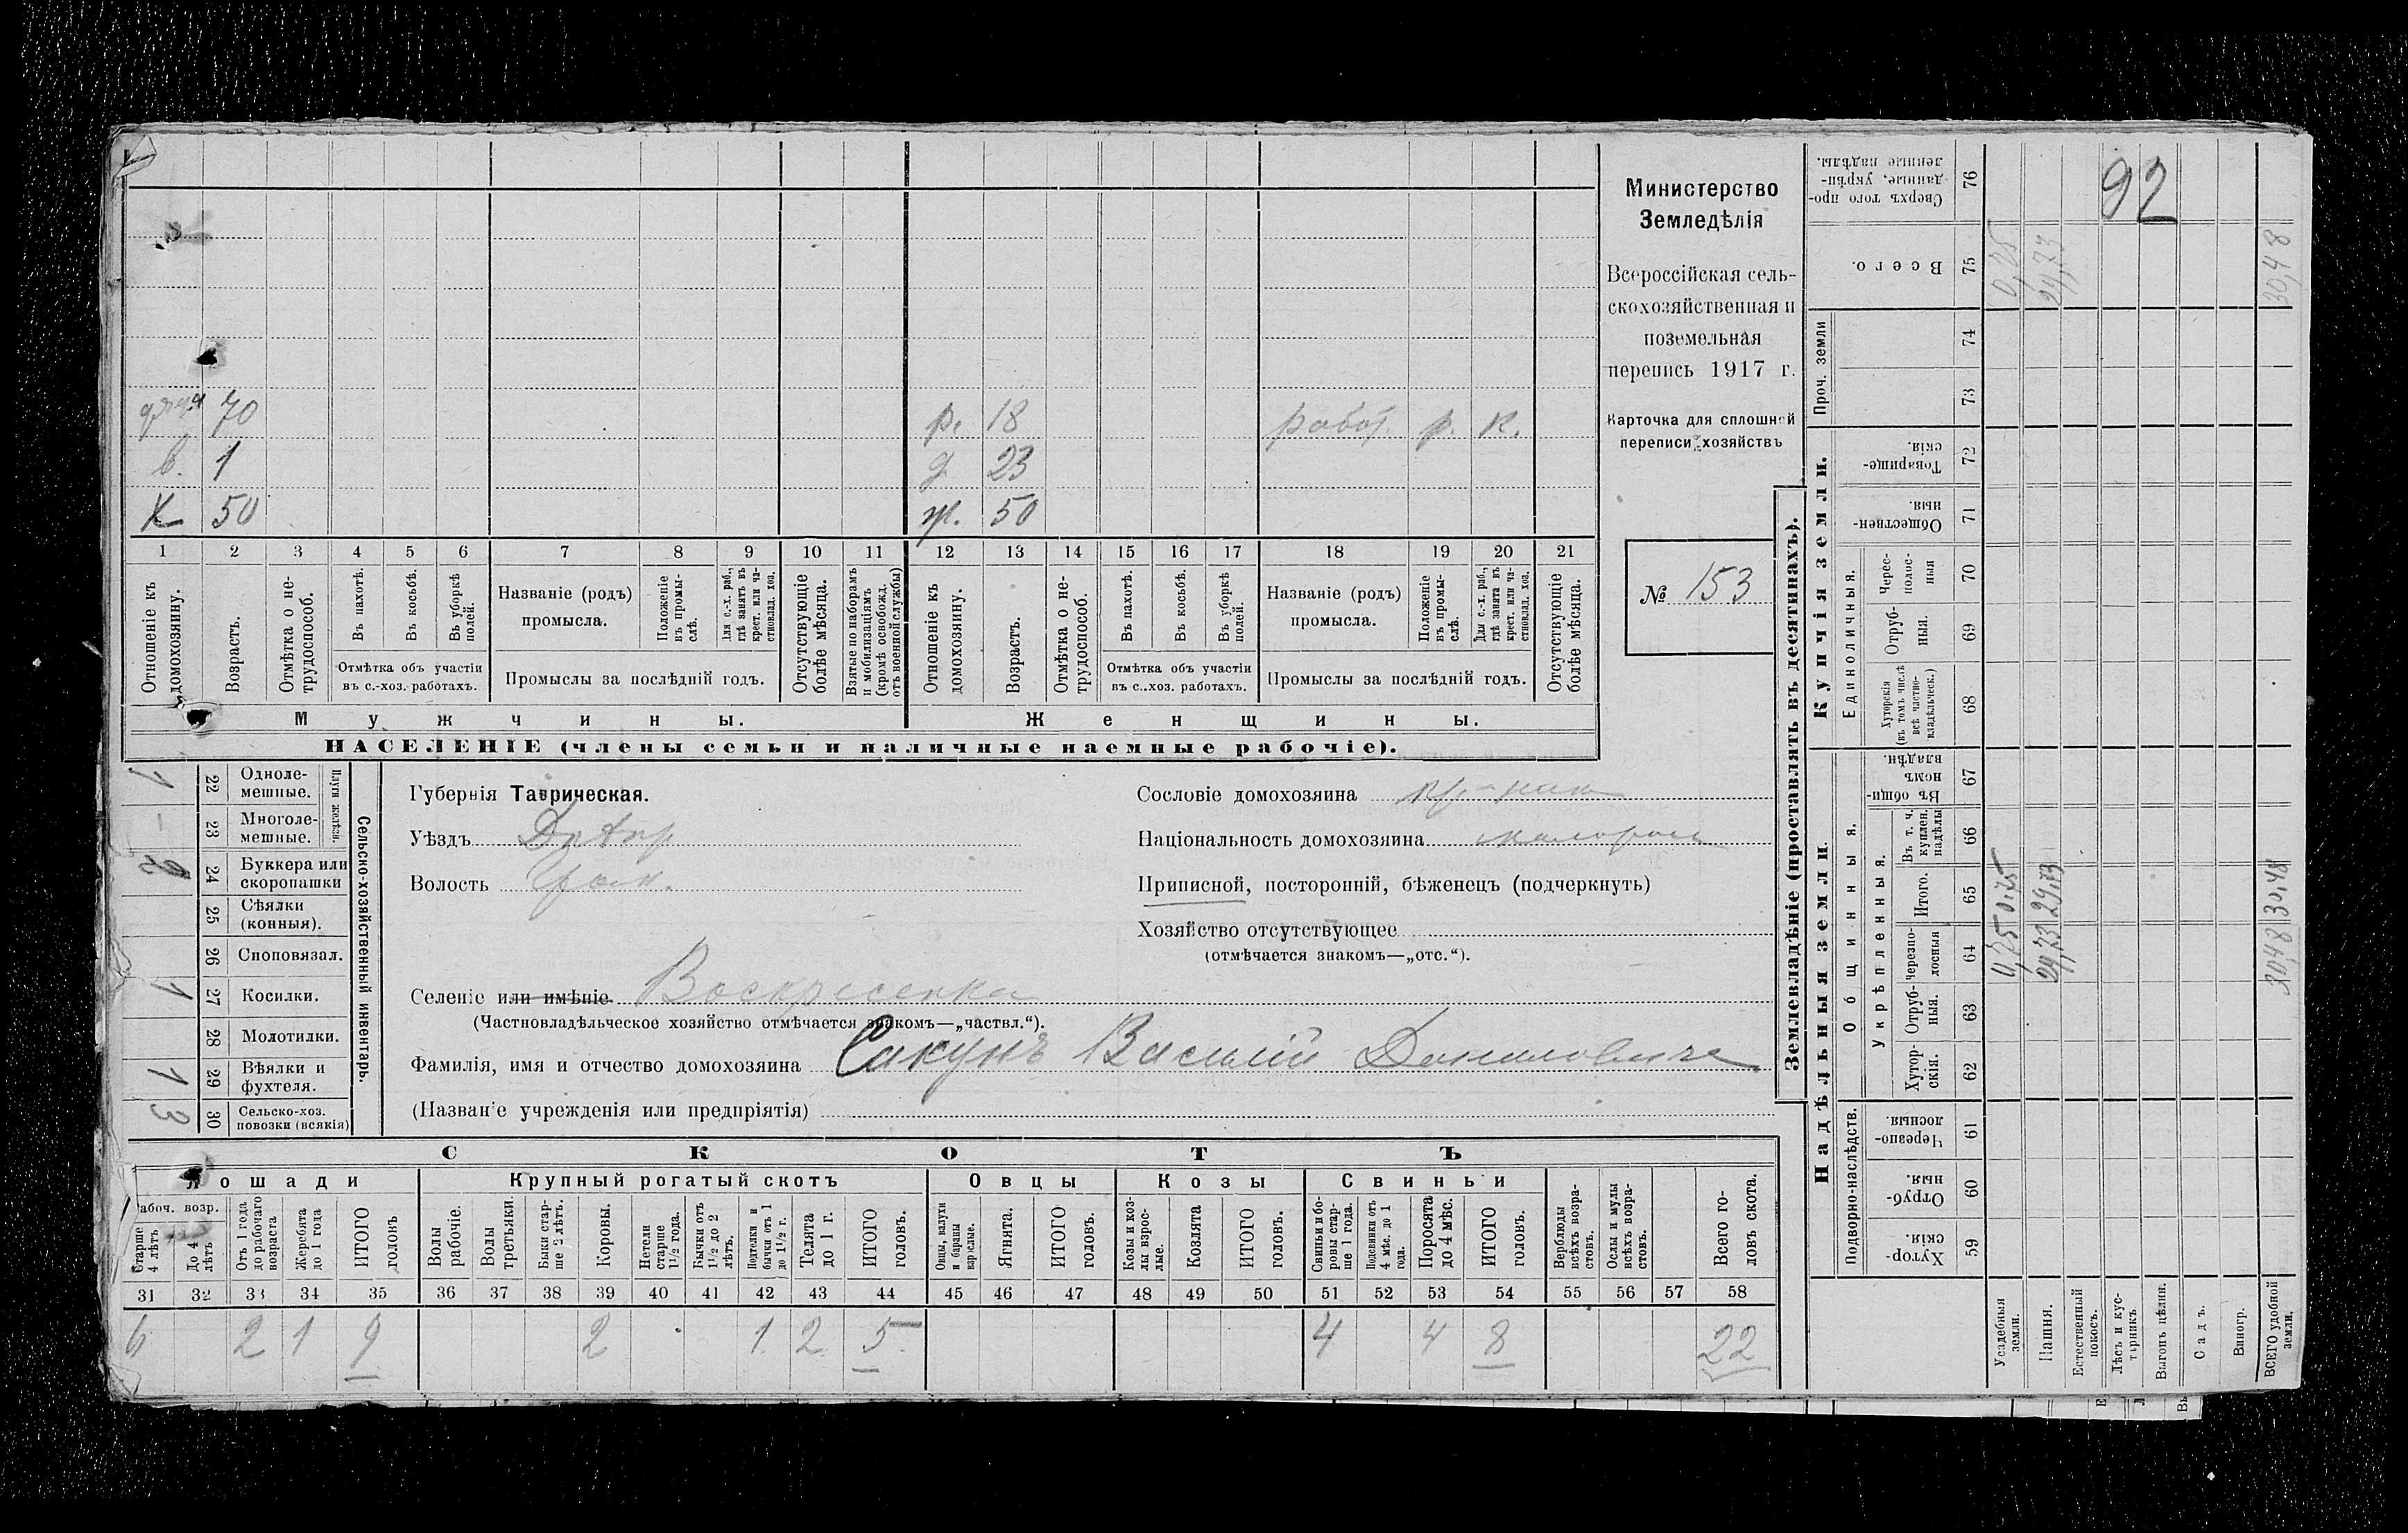 дядя 70
р. 18 работ. р. к.
в. 1
д 23
К 50
ж. 50
1 2 3 4 5 6 7 8 9 10 11 12 13 14 15 16 17 18 19 20 21
Отношеніе къ домохозяину.
Возрастъ.
Отмѣтка о не-
трудоспособ.
Въ пахотѣ.
Въ косьбѣ.
Въ уборкѣ
полей.
Отмѣтка объ участіи
въ с.-хоз. работахъ.
Названіе (родъ)
промысла.
Положеніе
въ промы-
слѣ.
Для с.-х. раб.,
гдѣ занятъ въ
крест. или ча-
стновлад. хоз.
Промыслы за послѣдній годъ.
Отсутствующіе
болѣе мѣсяца.
Взятые по наборамъ
и мобилизаціямъ
(кромѣ освобожд.
отъ военной службы)
Отношеніе къ
домохозяину.
Возрастъ.
Отмѣтка о не-
трудоспособ.
Въ пахотѣ.
Въ косьбѣ.
Въ уборкѣ
полей.
Отмѣтка объ участіи
въ с..хоз. работахъ.
Названіе (родъ)
промысла.
Положеніе
въ промы-
слѣ.
Для с.-х. раб.,
гдѣ занята въ
крест. или ча-
стновлад. хоз.
Промыслы за послѣдній годъ.
Отсутствующіе
болѣе мѣсяца.
Мужчины.
Женщины.
НАСЕЛЕНІЕ (члены семьи и наличные наемные рабочіе).
Министерство
Земледѣлія
Всероссійская сель-
скохозяйственная и
поземельная
перепись 1917 г.
Карточка для сплошной
переписи хозяйствъ
№ 153
Плуги желѣзн.
22 Одноле-
мешные. 1
23 Многоле-
мешные. –
24 Буккера или
скоропашки
25 Сѣялки
(конныя).
26 Споповязал.
27 Косилки. 1
28 Молотилки.
29 Вѣялки и
фухтеля. 1
30 Сельско-хоз.
повозки (всякія) 3
Сельско-хозяйственный инвентарь.
Губернія Таврическая.
Уѣздъ Днѣпр
Волость
Селеніе или имѣніе Воскресенка
(Частновладѣльческое хозяйство отмѣчается знакомъ—„частвл.“).
Фамилія, имя и отчество домохозяина Сакунъ Василій Даниловичъ
(Названіе учрежденія или предпріятія)
Сословіе домохозяина
Національность домохозяина малоросъ
Приписной, посторонній, бѣженецъ (подчеркнуть)
Хозяйство отсутствующее
(отмѣчается знакомъ—„отс.“).
СКОТЪ
Лошади
Крупный рогатый скотъ
Овцы
Козы
Свиньи
Рабоч. возр.
Старше
4 лѣтъ
До 4
лѣтъ
Отъ 1 года
до рабочаго
возраста
Жеребята
до 1 года
ИТОГО
головъ
Волы
рабочіе.
Волы
третьяки.
Быки стар-
ше 2 лѣтъ.
Коровы.
Нетели
старше
1½ года.
Бычки отъ
1½ до 2
лѣтъ.
Подтелки и
бычки отъ 1
до 1½ г.
Телята
до 1 г.
ИТОГО
головъ.
Овцы, валухи
и бараны
взрослые.
Ягнята.
ИТОГО
головъ.
Козы и коз-
лы взрос-
лые.
Козлята
ИТОГО
головъ.
Свиньи и бо-
ровы стар-
ше 1 года.
Подсвинки отъ
4 мѣс. до 1
года.
Поросята
до 4 мѣс.
ИТОГО
головъ.
Верблюды
всѣхъ возра-
стовъ.
Ослы и мулы
всѣхъ возра-
стовъ.
Всего го-
ловъ скота.
31 32 33 34 35 36 37 38 39 40 41 42 43 44 45 46 47 48 49 50 51 52 53 54 55 56 57 58
6 2 1 9 2 1 2 5 4 4 8 22
Землевладѣніе (проставлять въ десятинахъ).
Надѣльныя земли
Купчія земли.
Проч. земли
Подворно-наслѣдств.
Общинныя.
Укрѣпленныя.
Единоличныя.
Хутор-
скія. 59
Отруб-
ныя. 60
Черезпо-
лосныя 61
Хутор-
скія. 62
Отруб-
ныя. 63
Черезпо-
лосныя 64
Итого. 65
Въ т. ч.
куплен.
надѣлы 66
Въ общи-
номъ
владѣн. 67
Хуторскія
(въ томъ числѣ
всѣ частно-
владѣльческ.) 68
Отруб-
ныя. 69
Черес-
полос-
ныя 70
Обществен-
ныя. 71
Товарище-
скія 72
73
74
Всего. 75
Сверхъ того про-
данные, укрѣп-
ленные надѣлы. 76
92
Усадебныя
земли. 0,75 0,75
Пашня. 29,73 29,73 29,73
Естественный
покосъ.
Лѣсъ и кус-
тарникъ
Выгонъ цѣлин.
Садъ.
Виногр.
ВСЕГО удобной
земли. 30,48 30,48 30,48